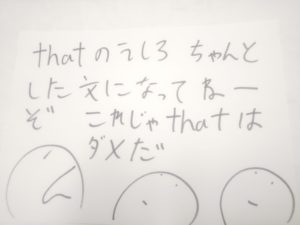 thatのうしろ ちゃんと
した文になってねー
ぞ これじゃthatは
ダメだ